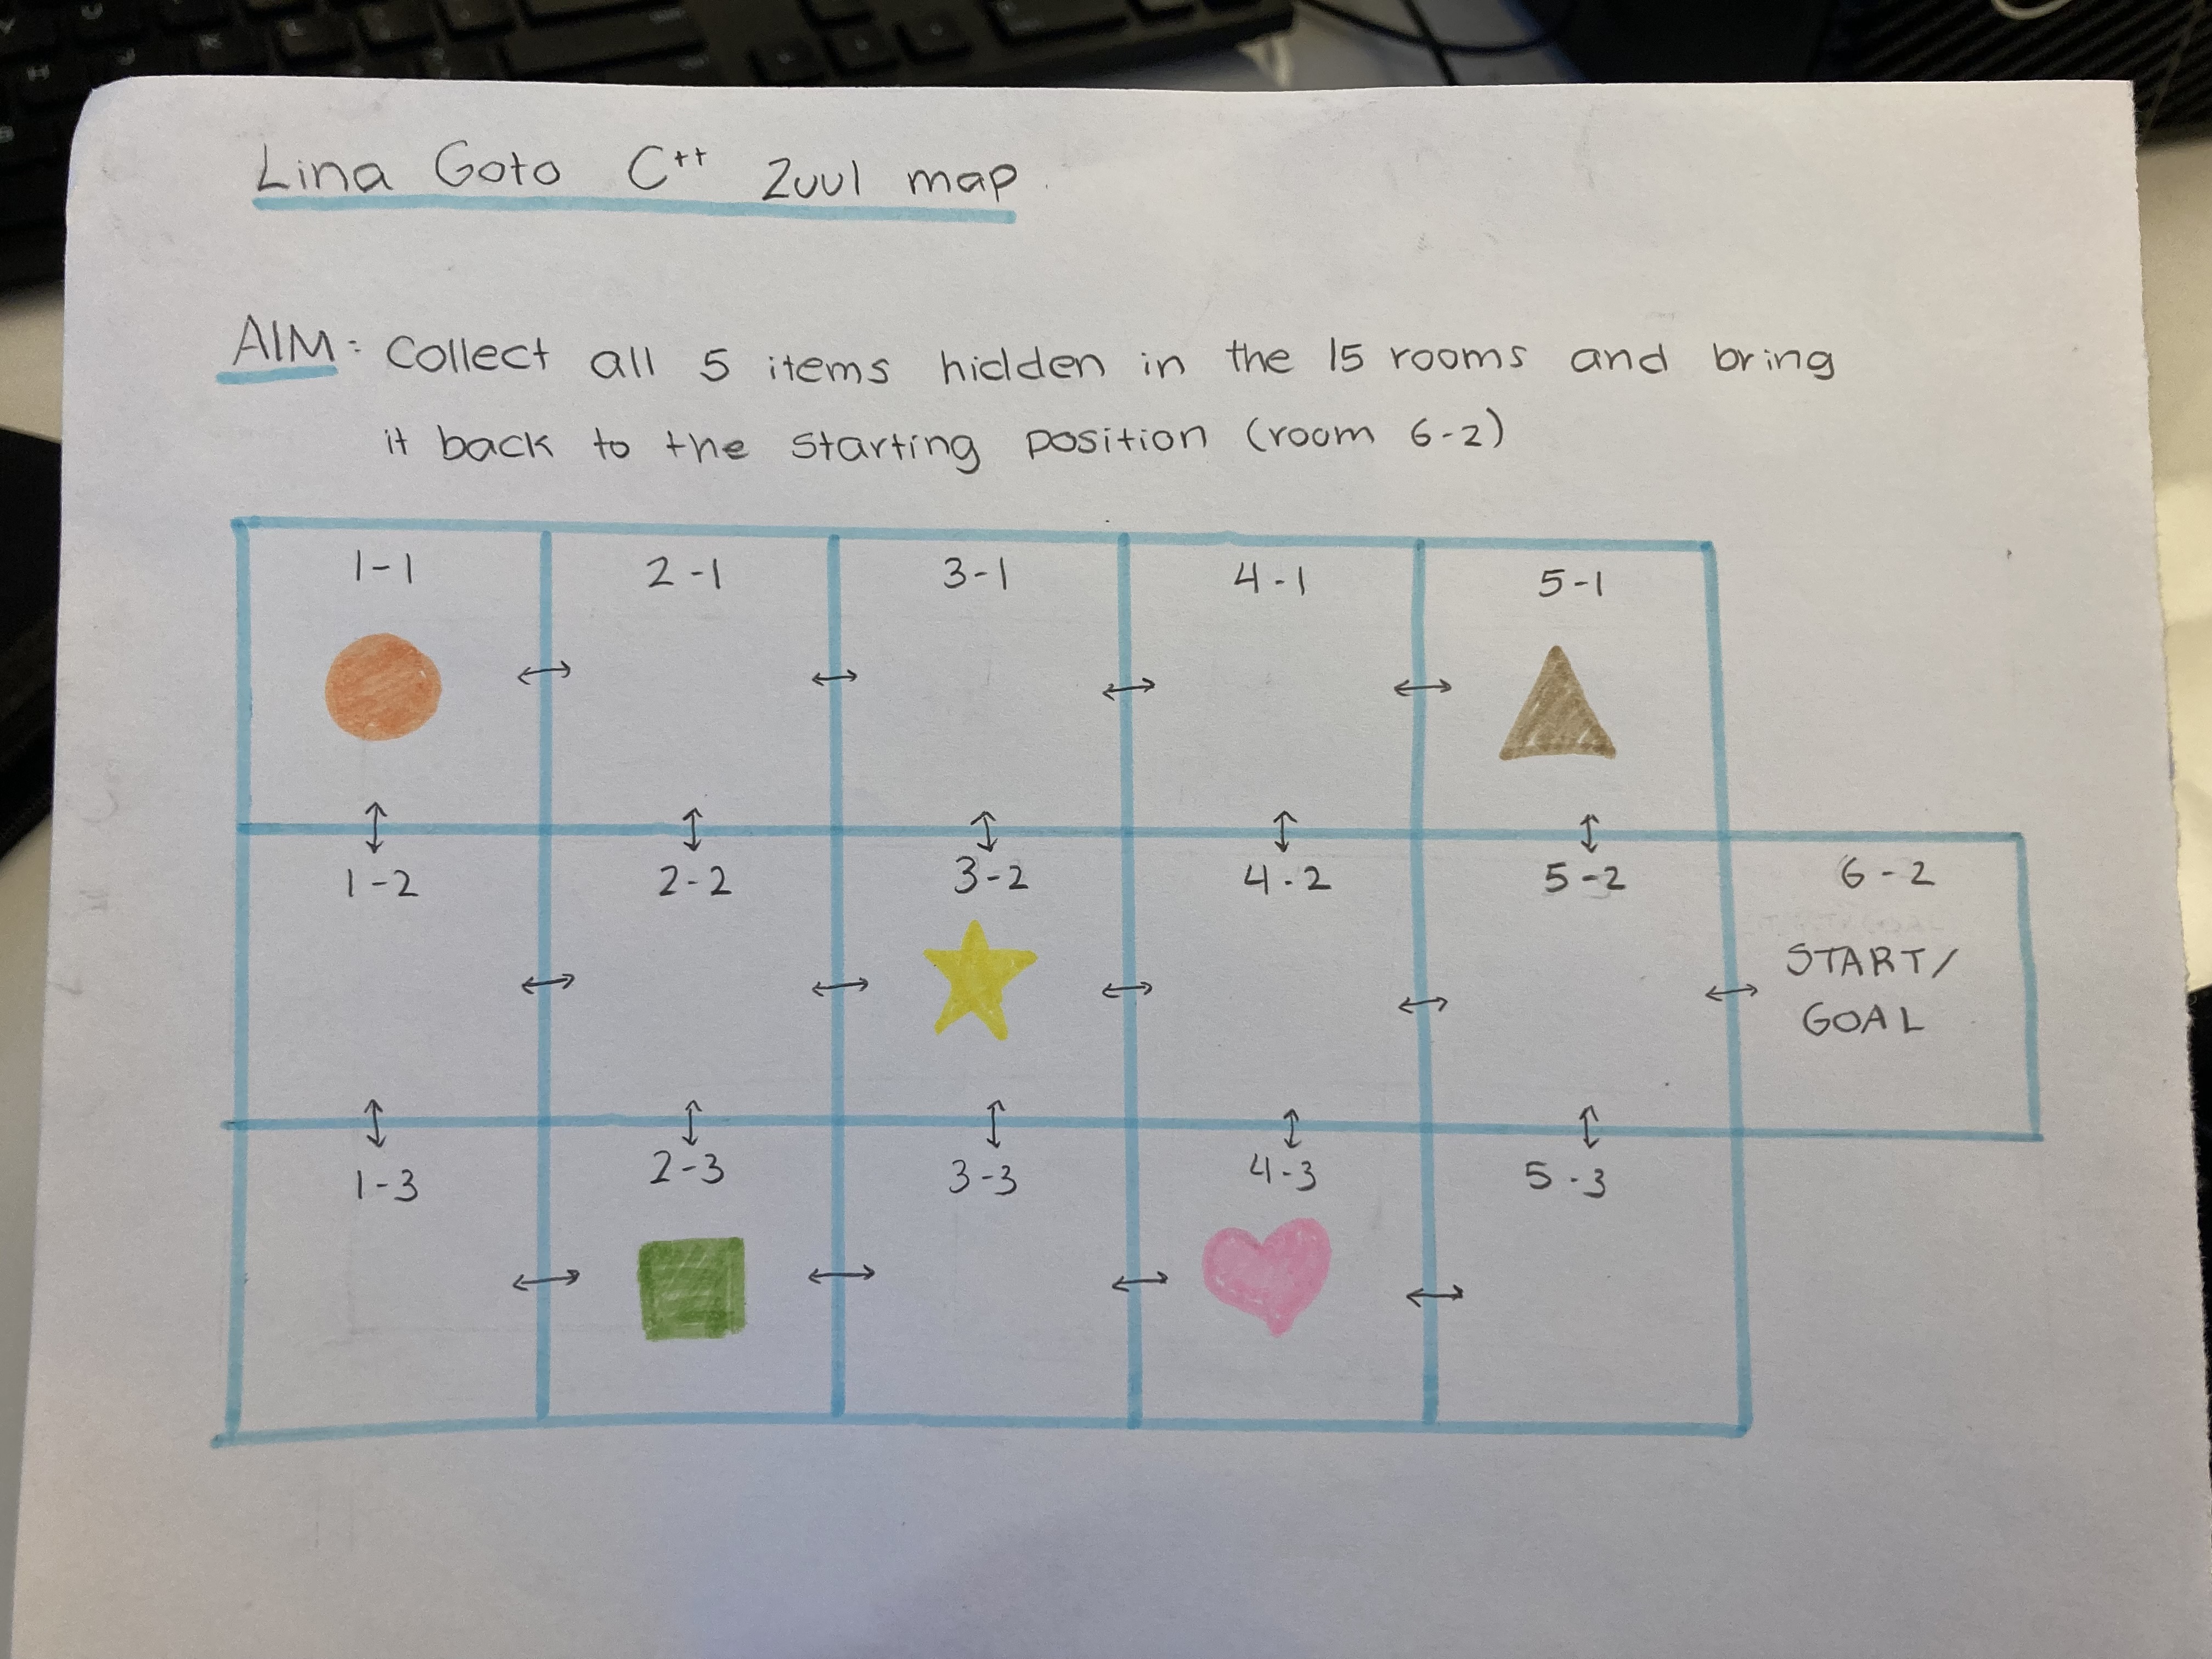 Lina Goto C++ Zuul map
AIM: Collect all 5 items hidden in the 15 rooms and bring
it back to the starting position (room 6-2)
1-1 2-1 3-1 4-1 5-1
1-2 2-2 3-2 4-2 5-2 6-2
START/
GOAL
1-3 2-3 3-3 4-3 5-3